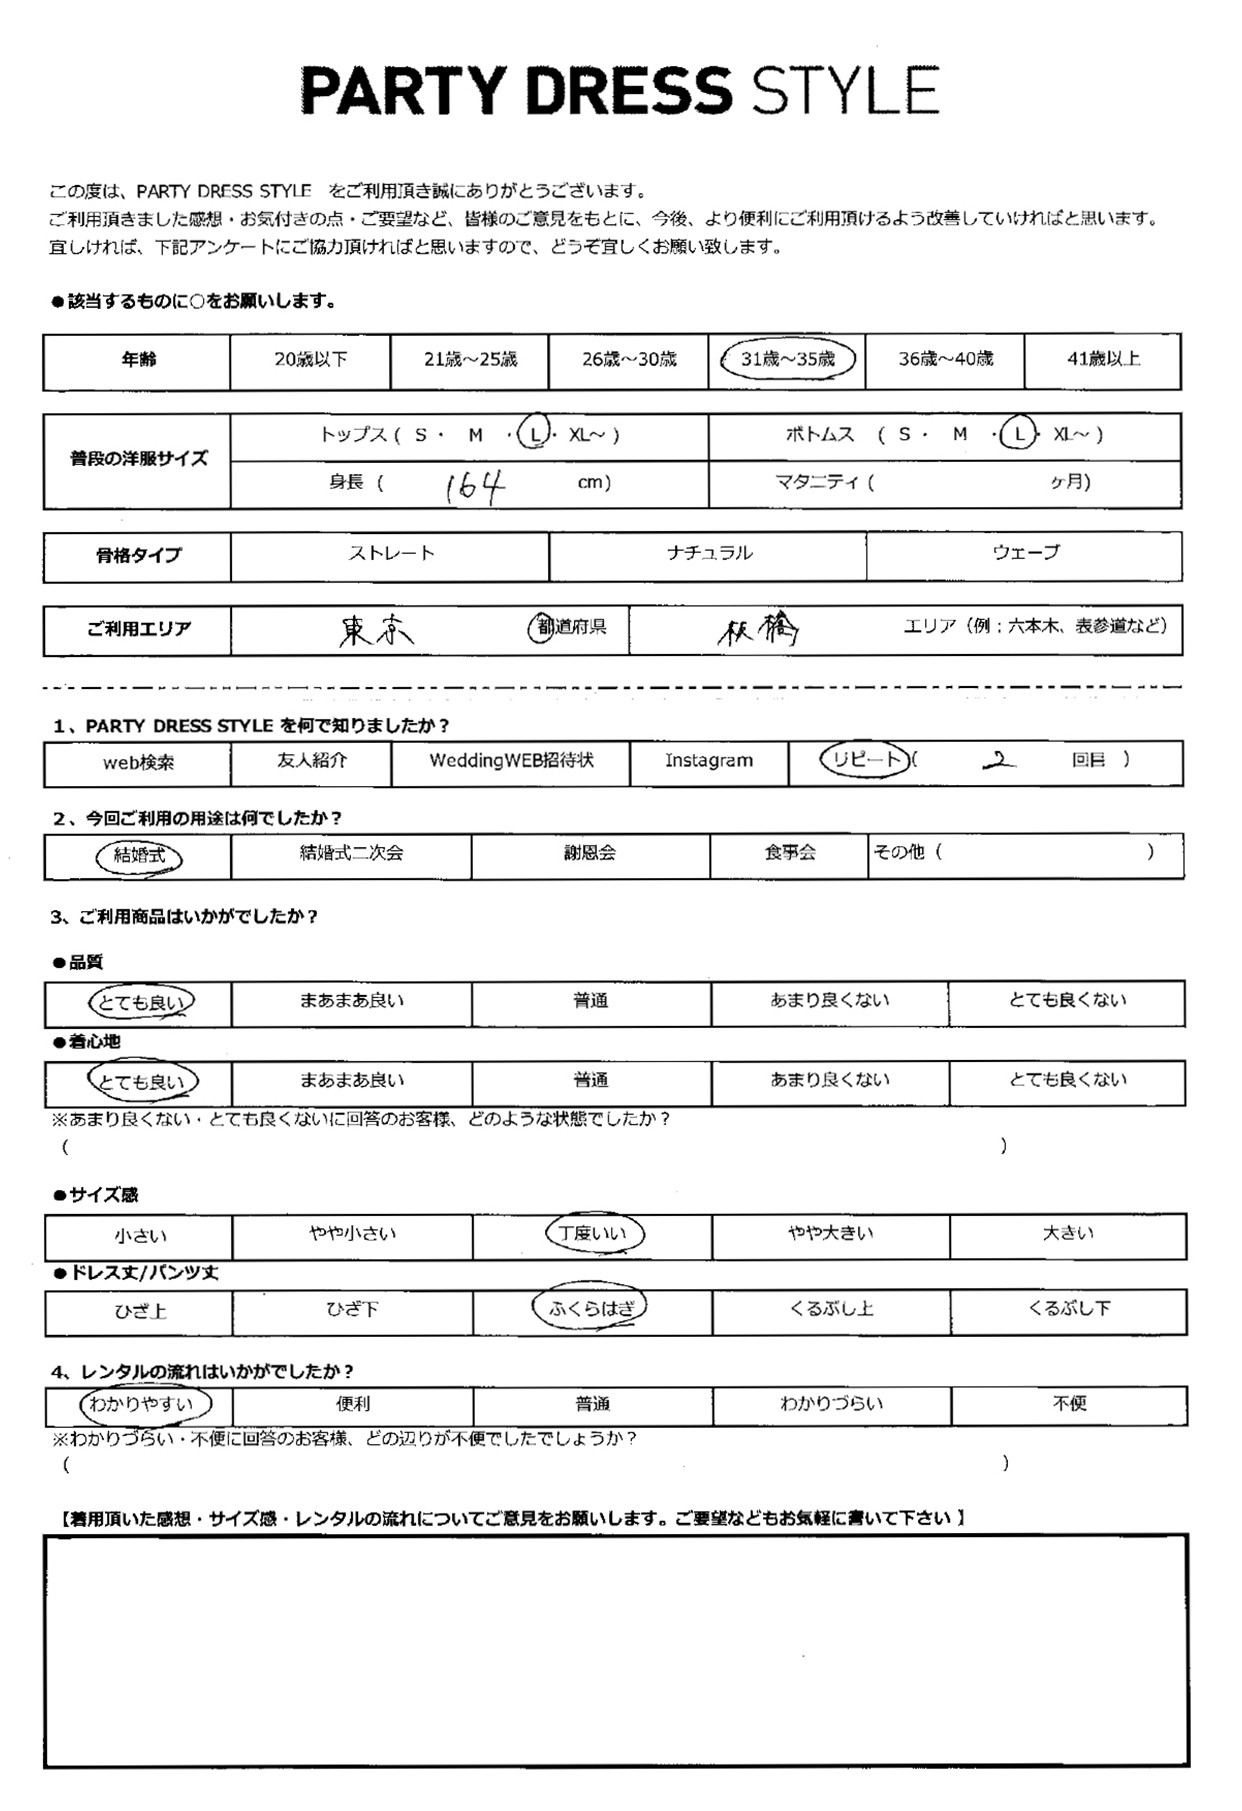 PARTY DRESS STYLE
この度は、PARTY DRESS STYLE をご利用頂き誠にありがとうございます。
ご利用頂きました感想・お気付きの点・ご要望など、皆様のご意見をもとに、今後、より便利にご利用頂けるよう改善していければと思います。
宜しければ、下記アンケートにご協力頂ければと思いますので、どうぞ宜しくお願い致します。
●該当するものに○をお願いします。
年齢 20歳以下 21歳～25歳 26歳～30歳 31歳～35歳 36歳～40歳 41歳以上
普段の洋服サイズ トップス ( S ・ M ・ L ・ XL～ ) ボトムス ( S ・ M ・ L ・ XL～ )
身長 ( 164 cm) マタニティ ( ヶ月)
骨格タイプ ストレート ナチュラル ウェーブ
ご利用エリア 東京 都道府県 板橋 エリア（例；六本木、表参道など）
1、PARTY DRESS STYLE を何で知りましたか？
web検索 友人紹介 WeddingWEB招待状 Instagram リピート( 2 回目 )
2、今回ご利用の用途は何でしたか？
結婚式 結婚式二次会 謝恩会 食事会 その他 ( )
3、ご利用商品はいかがでしたか？
●品質
とても良い まあまあ良い 普通 あまり良くない とても良くない
●着心地
とても良い まあまあ良い 普通 あまり良くない とても良くない
※あまり良くない・とても良くないに回答のお客様、どのような状態でしたか？
( )
●サイズ感
小さい やや小さい 丁度いい やや大きい 大きい
●ドレス丈/パンツ丈
ひざ上 ひざ下 ふくらはぎ くるぶし上 くるぶし下
4、レンタルの流れはいかがでしたか？
わかりやすい 便利 普通 わかりづらい 不便
※わかりづらい・不便に回答のお客様、どの辺りが不便でしたでしょうか？
( )
【着用頂いた感想・サイズ感・レンタルの流れについてご意見をお願いします。ご要望などもお気軽に書いて下さい 】